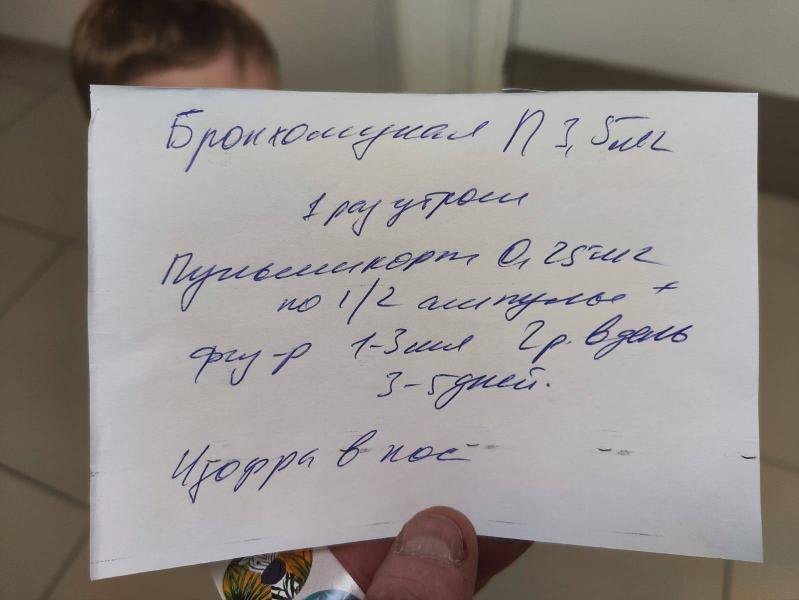 Бронхомунал П 3,5мг
1 раз утром
Пульмикорт 0,25мг
по 1/2 ампулы +
физ-р 1-3мл 2р. в день
3-5дней.
Изофра в нос